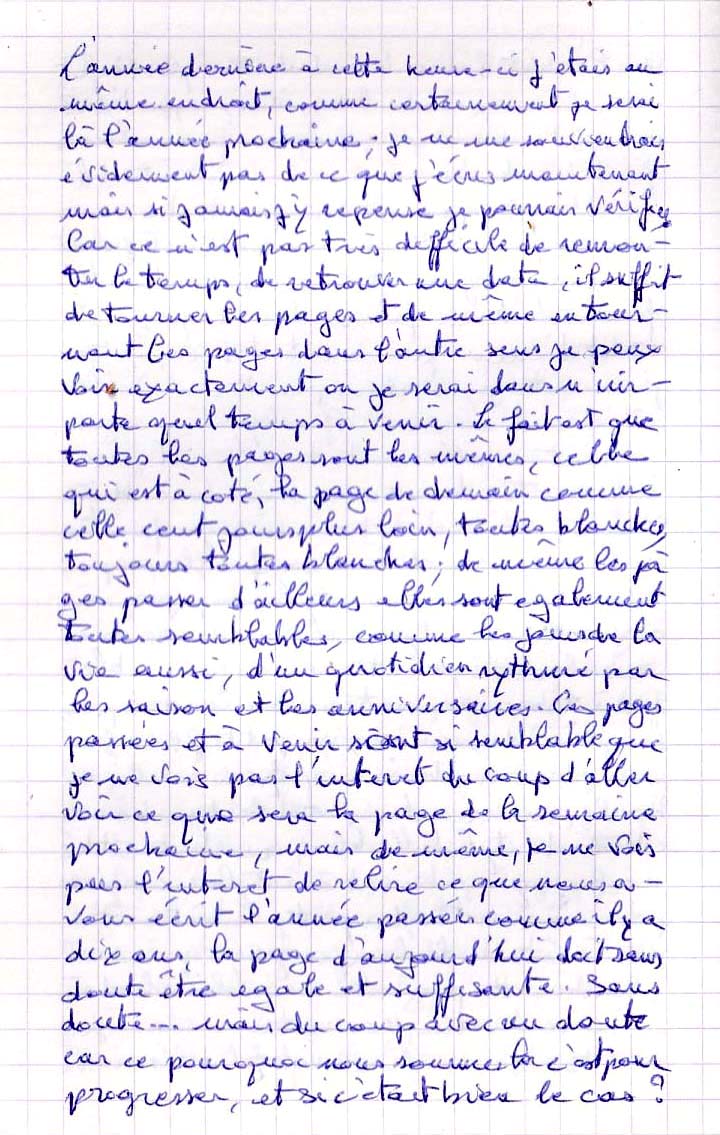 L'année dernière à cette heure-ci j'étais au
même endroit, comme certainement je serai
là l'année prochaine ; je ne me souviendrais
évidement pas de ce que j'écris maintenant
mais si jamais j'y repense je pourrais vérifier
Car ce n'est pas très difficile de remon-
ter le temps, de retrouver une date, il suffit
de tourner les pages et de même en tour-
nant les pages dans l'autre sens je peux
voir exactement ou je serai dans n'im-
porte quel temps à venir. Le fait est que
toutes les pages sont les mêmes, celle
qui est à coté, la page de demain comme
celle cent jours plus loin, toutes blanches,
toujours toutes blanches ; de même les pa
ges passer d'ailleurs elles sont egalement
toutes semblables, comme les jours de la
vie aussi, d'un quotidien rythmé par
les saison et les anniversaires. Ces pages
passées et à venir sont si semblable que
je ne vois pas l'interet du coup d'aller
voir ce que sera la page de la semaine
prochaine, mais de même, je ne vois
pas l'interet de relire ce que nous a-
vons écrit l'année passée comme il y a
dix ans, la page d'aujourd'hui doit sans
doute être egale et suffisante. Sans
doute... mais du coup avec un doute
car ce pourquoi nous sommes là c'est pour
progresser, et si c'était bien le cas ?